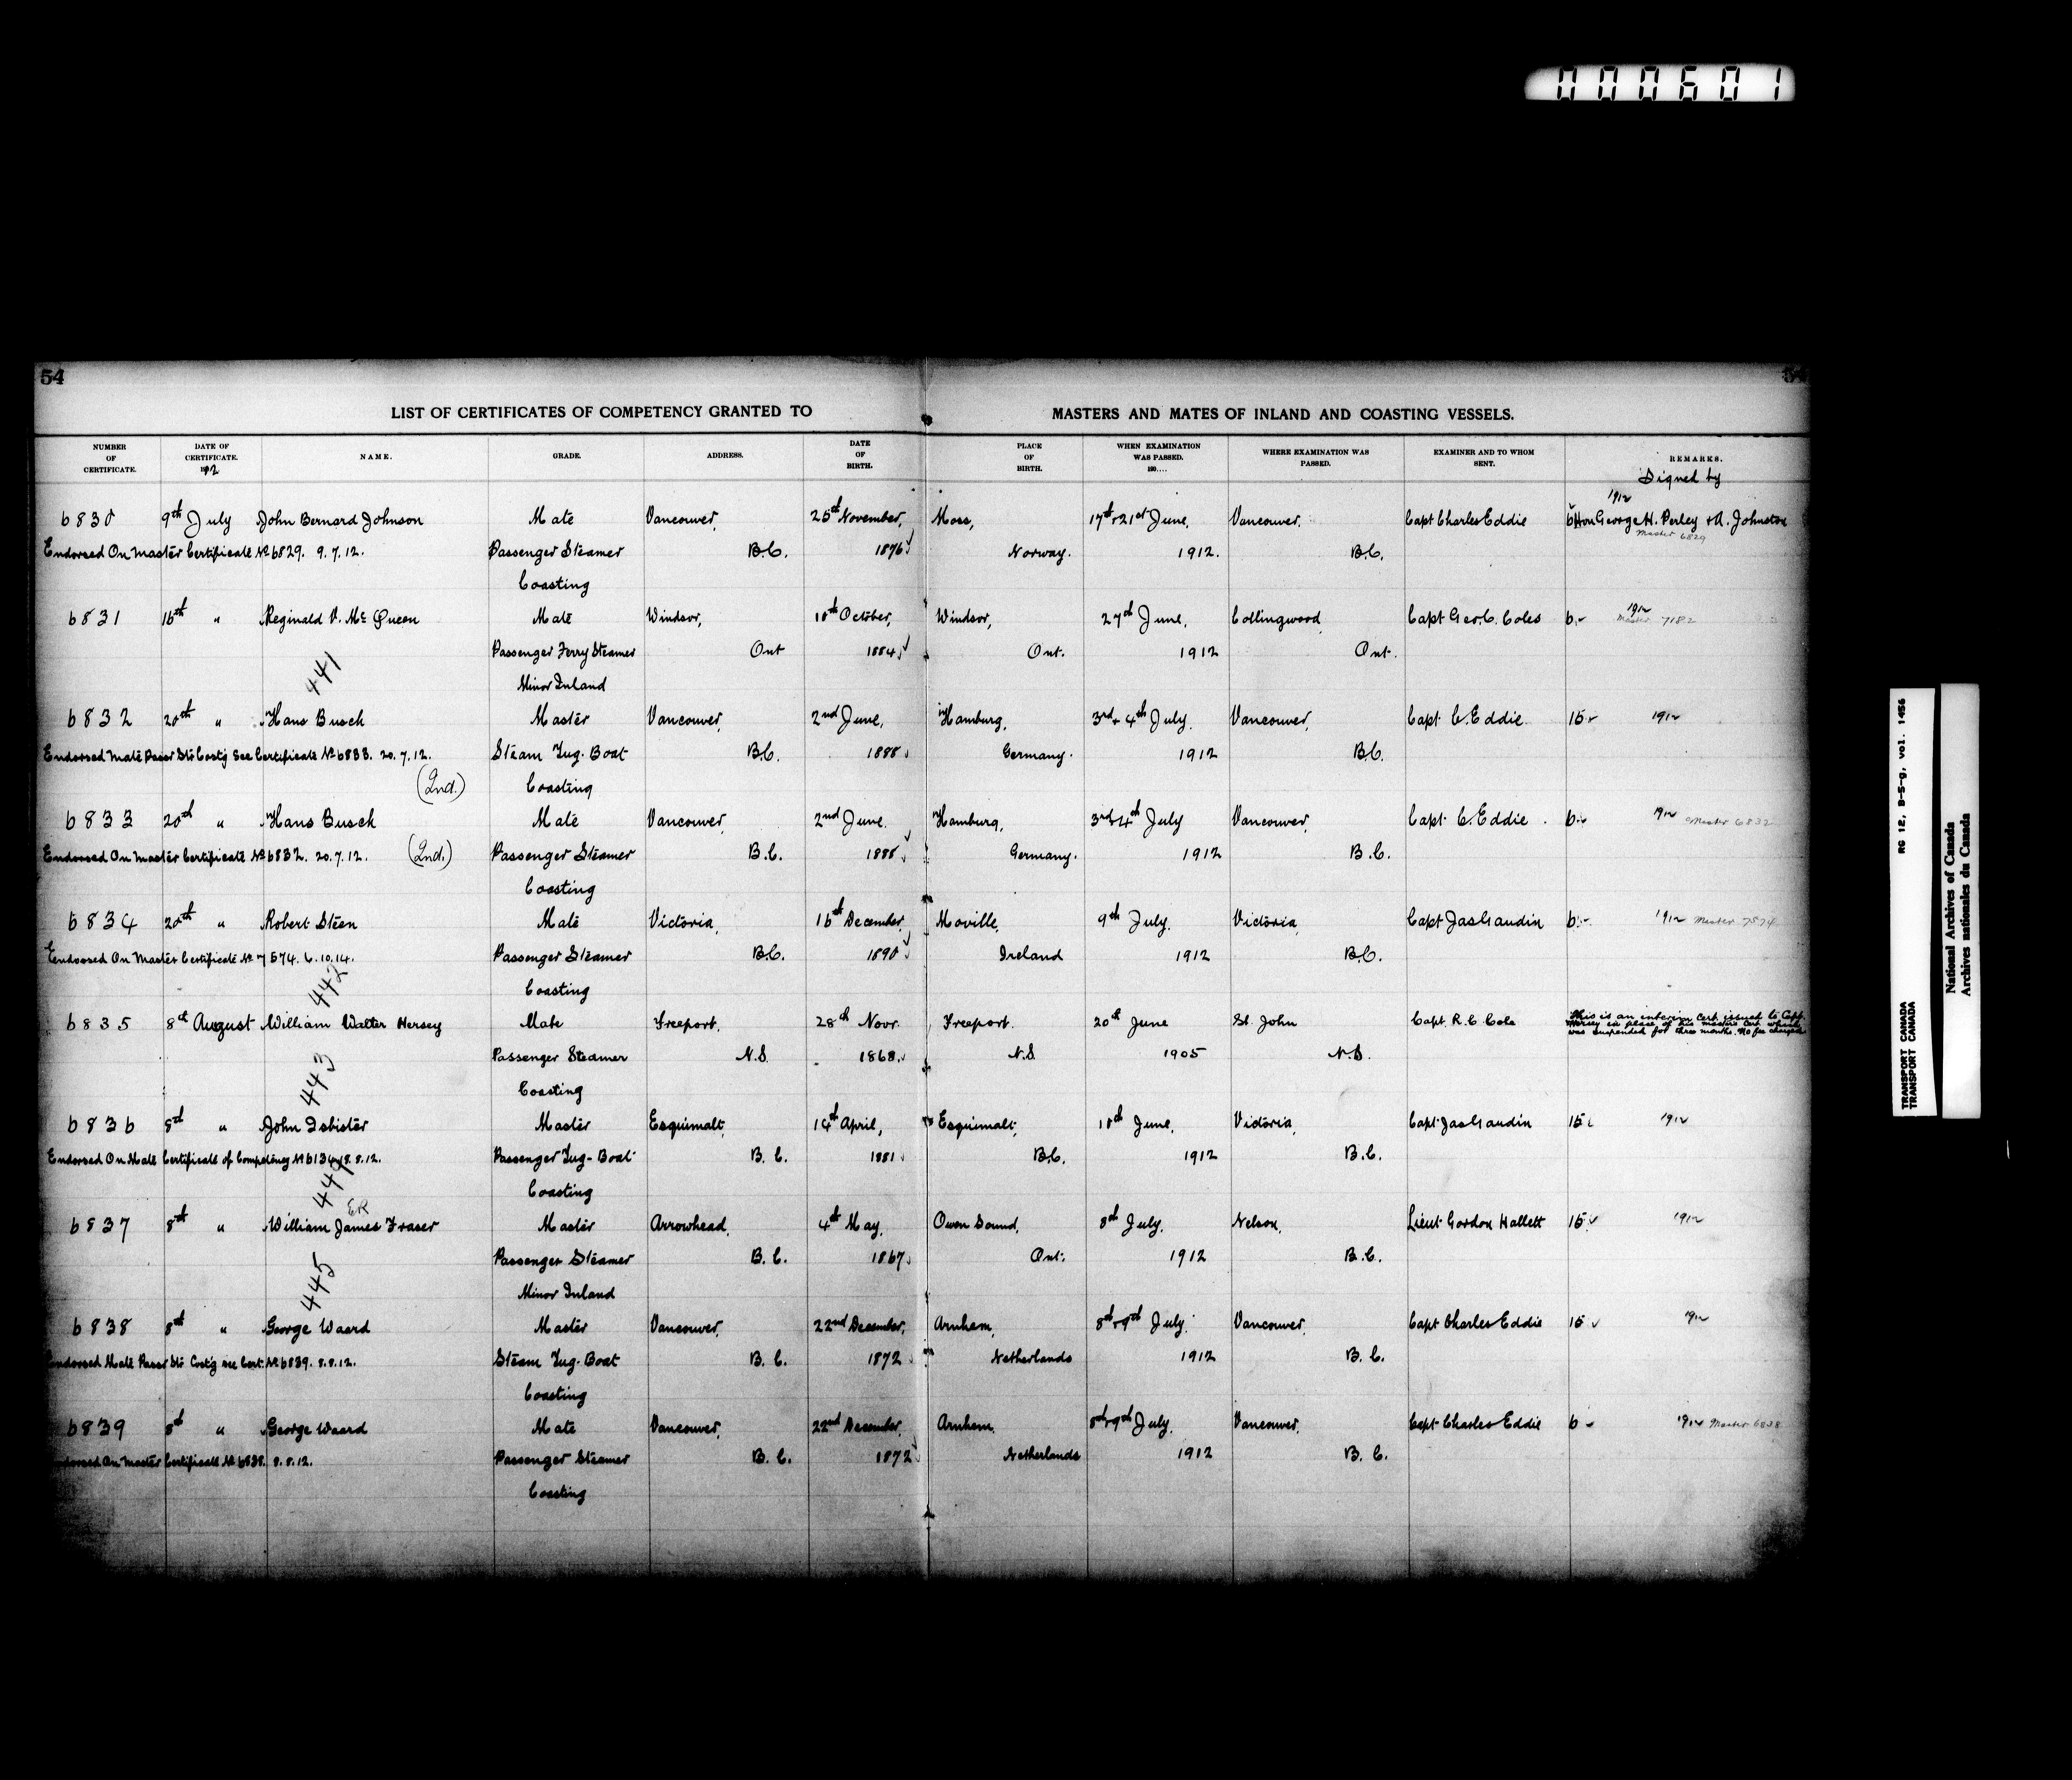 000601
54
54
LIST OF CERTIFICATES OF COMPETENCY GRANTED TO MASTERS AND MATES OF INLAND AND COASTING VESSELS.
NUMBER OF CERTIFICATE. DATE OF CERTIFICATE. 1912 NAME. GRADE. ADDRESS. DATE OF BIRTH. PLACE OF BIRTH. WHEN EXAMINATION WAS PASSED. 190.... WHERE EXAMINATION WAS PASSED. EXAMINER AND TO WHOM SENT. REMARKS.
Signed by
1912
6830 9th July John Bernard Johnson Mate Vancouver, 25th November, Moss, 17th & 21st June, Vancouver, Capt Charles Eddie 6 Hon George H. Perley & A. Johnston
Master 6829
Endorsed On Master Certificate No 6829. 9.7.12. Passenger Steamer B.C. 1876 Norway. 1912. B.C.
Coasting
6831 16th " Reginald V. McQueen Mate Windsor, 10th October, Windsor, 27th June, Collingwood, Capt Geo. C. Coles 6 1912
Master 7182
441 Passenger Ferry Steamer Ont 1884 Ont. 1912 Ont.
Minor Inland
6832 20th " Hans Busch Master Vancouver, 2nd June, Hamburg, 3rd & 4th July. Vancouver, Capt. C. Eddie 15 1912
Endorsed Mate Passr Str Coast'g See Certificate No 6833. 20.7.12. Steam Tug-Boat B.C. 1888 Germany. 1912 B.C.
(2nd.) Coasting
6833 20th " Hans Busch Mate Vancouver, 2nd June. Hamburg, 3rd & 4th July Vancouver, Capt. C. Eddie 6 1912 Master 6832
Endorsed On Master Certificate No 6832. 20.7.12. (2nd.) Passenger Steamer B.C. 1888 Germany. 1912 B.C.
Coasting
6834 20th " Robert Steen Mate Victoria, 16th December, Moville, 9th July. Victoria, Capt Jas Gaudin 6 1912 Master 7574
Endorsed On Master Certificate No 7574. 6.10.14. Passenger Steamer B.C. 1890 Ireland 1912 B.C.
442 Coasting
6835 8th August William Walter Hersey Mate Freeport, 28th Novr. Freeport. 20th June St. John Capt. R. C. Cole This is an interim Cert. issued to Capt.
Hersey in place of his masters cert which
was suspended for three months. No fee charged.
Passenger Steamer N.S. 1868 N.S. 1905 N.B.
443 Coasting
6836 8th " John Isbister Master Esquimalt, 14th April, Esquimalt, 10th June, Victoria, Capt. Jas Gaudin 15 1912
Endorsed On Mate Certificate of Competency No 6134 8.8.12. Passenger Tug-Boat B.C. 1881 B.C. 1912 B.C.
444 Coasting
ER
6837 8th " William James Fraser Master Arrowhead, 4th May, Owen Sound, 8th July. Nelson, Lieut Gordon Hallett 15 1912
Passenger Steamer B.C. 1867 Ont. 1912 B.C.
445 Minor Inland
6838 8th " George Waard Master Vancouver, 22nd December, Arnhem, 8th & 9th July. Vancouver, Capt Charles Eddie 15 1912
Endorsed Mate Passr Str Coast'g see Cert. No 6839. 8.8.12. Steam Tug-Boat B.C. 1872 Netherlands 1912 B.C.
Coasting
6839 8th " George Waard Mate Vancouver, 22nd December, Arnhem, 8th & 9th July. Vancouver, Capt Charles Eddie 6 1912 Master 6838
Endorsed On Master Certificate No 6838. 8.8.12. Passenger Steamer B.C. 1872 Netherlands 1912 B.C.
Coasting
TRANSPORT CANADA RG 12, B-5-g, vol. 1456
TRANSPORT CANADA
National Archives of Canada
Archives nationales du Canada